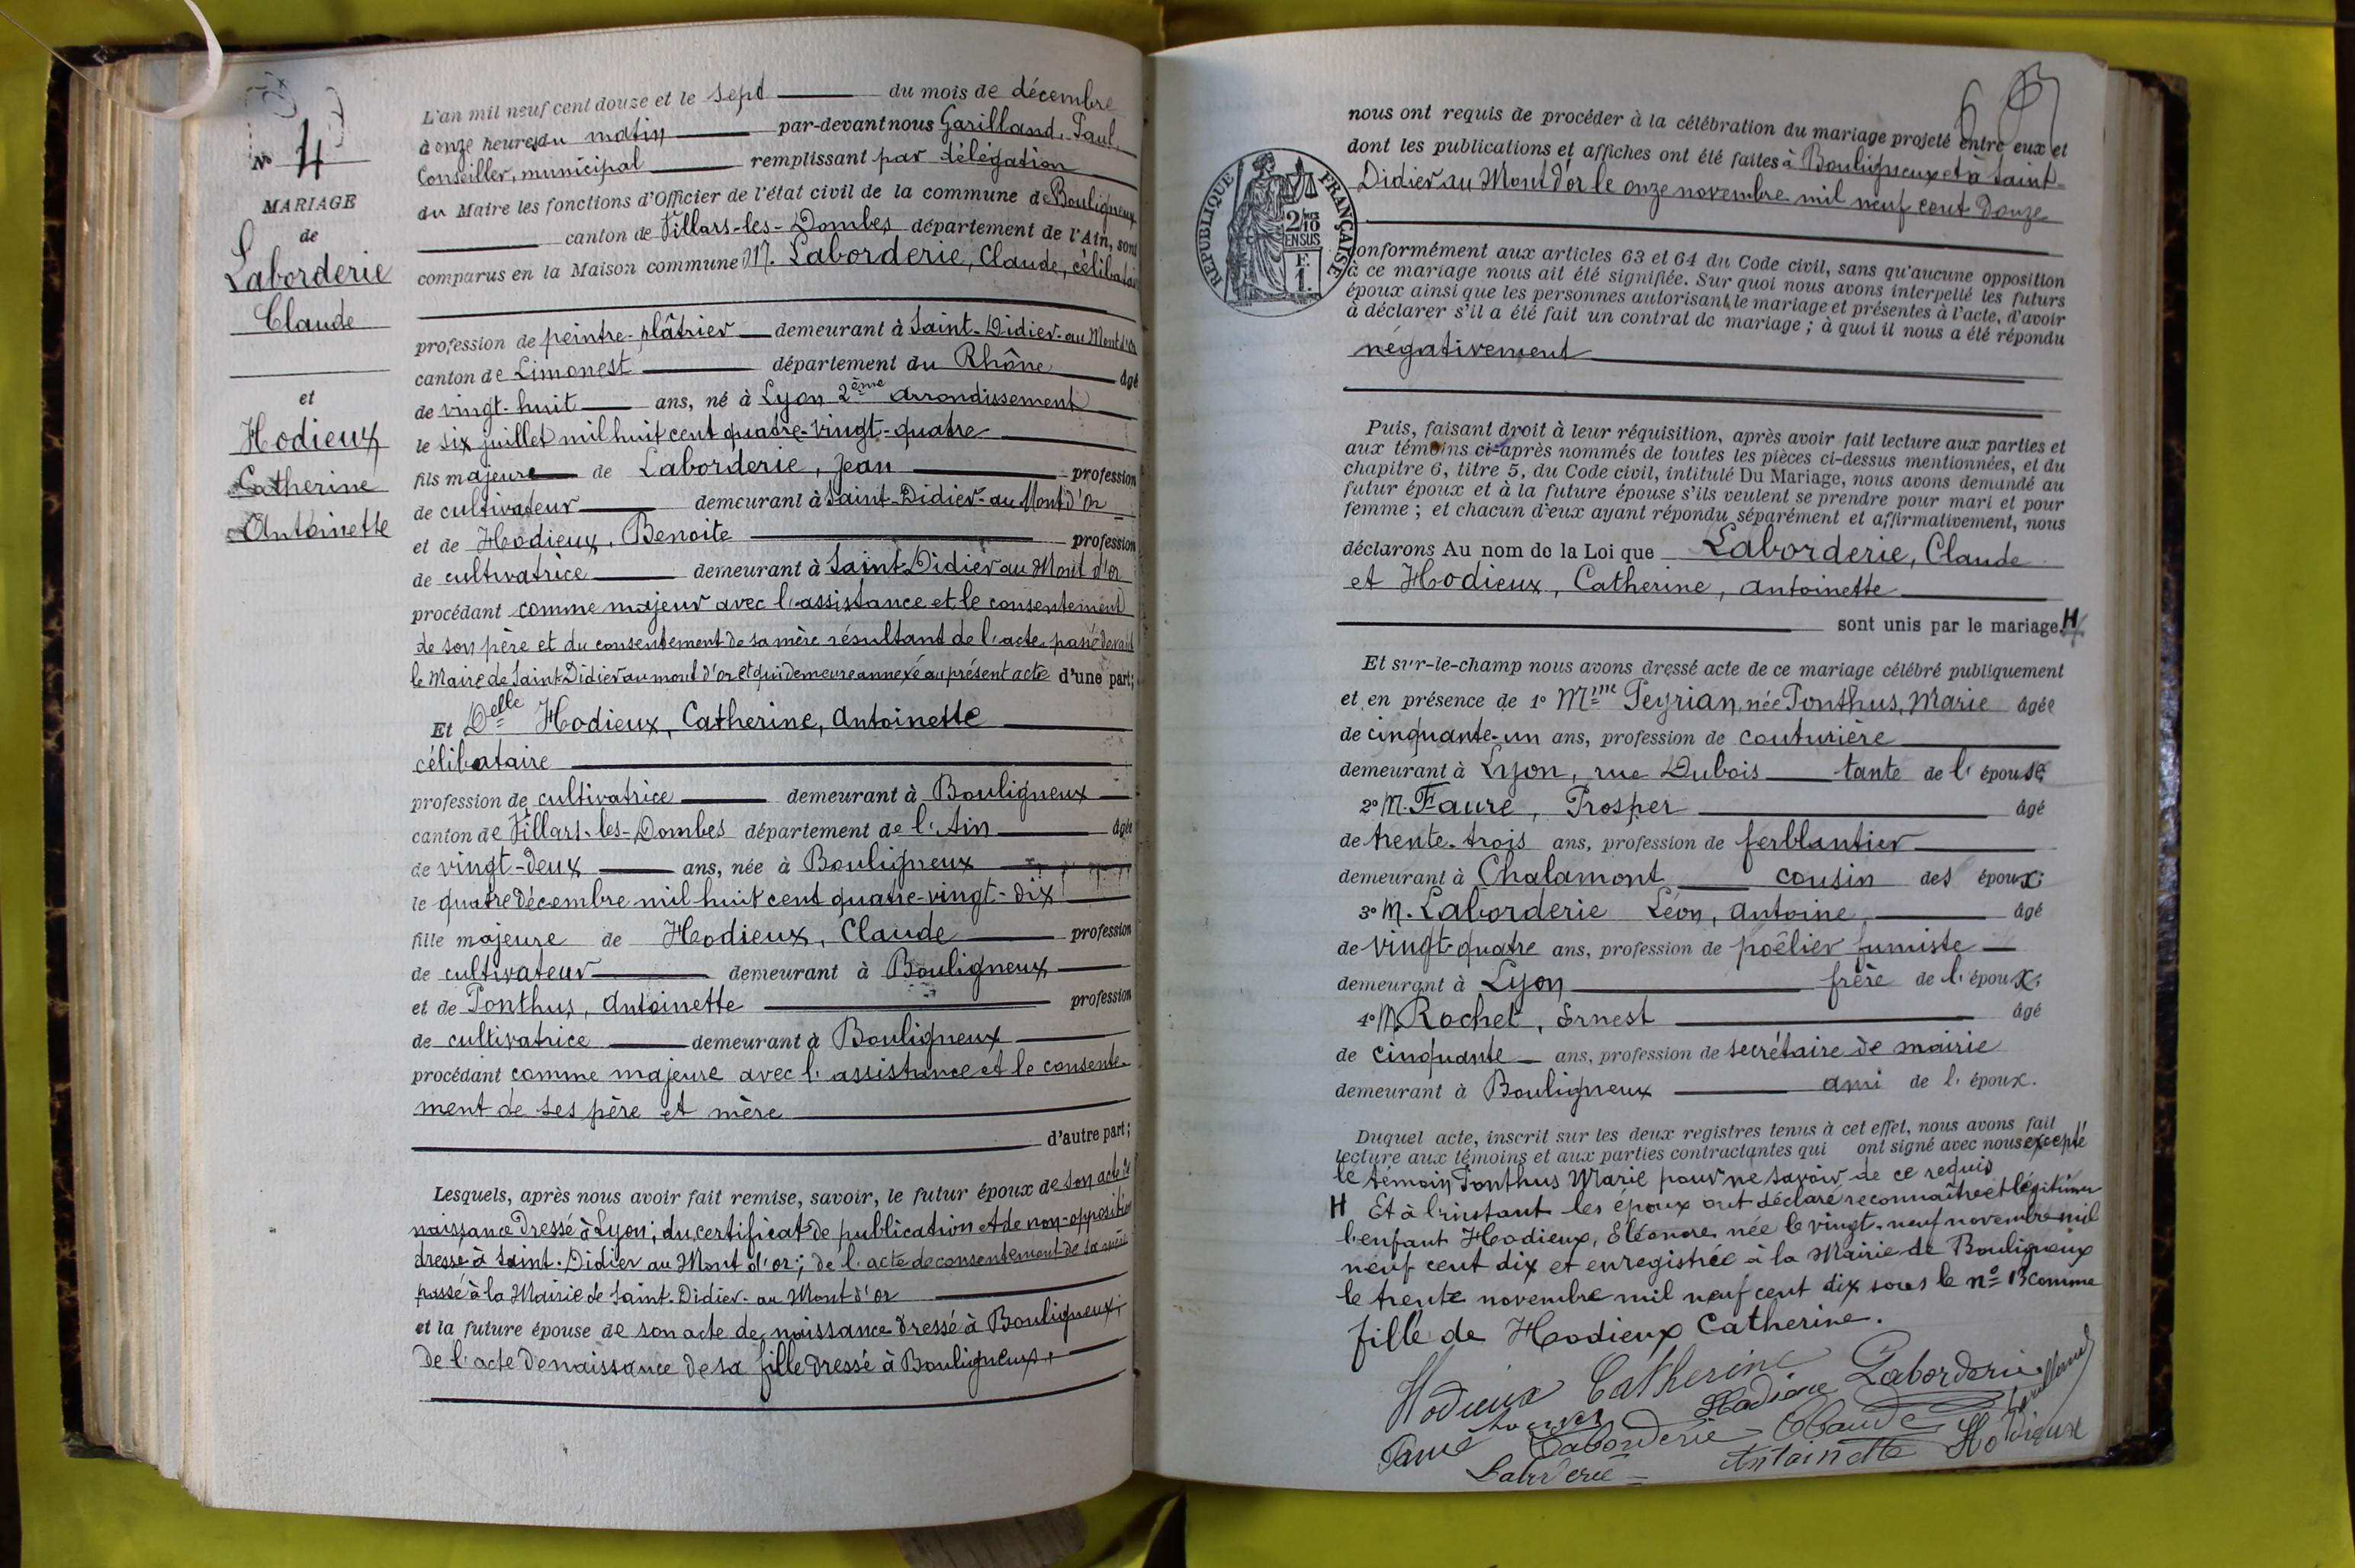 N° 4
MARIAGE
de
Laborderie
Claude
et
Hodieux
Catherine
Antoinette
L'an mil neuf cent douze et le sept du mois de décembre
à onze heures du matin par-devant nous Garilland, Paul,
Conseiller, municipal remplissant par délégation
du Maire les fonctions d'Officier de l'état civil de la commune de Bouligneux
canton de Villars-les-Dombes département de l'Ain, sont
comparus en la Maison commune M. Laborderie, Claude, célibataire
profession de peintre-plâtrier demeurant à Saint-Didier-au Mont d'Or
canton de Limonest département du Rhône âgé
de vingt-huit ans, né à Lyon 2ème arrondissement
le six juillet mil huit cent quatre-vingt-quatre
fils majeur de Laborderie, Jean profession
de cultivateur demeurant à Saint-Didier-au Mont d'Or
et de Hodieux, Benoite profession
de cultivatrice demeurant à Saint-Didier au Mont d'or
procédant comme majeur avec l'assistance et le consentement
de son père et du consentement de sa mère résultant de l'acte passé devant
le Maire de Saint-Didier au mont d'or et qui demeure annexé au présent acte d'une part;
Et Delle Hodieux, Catherine, Antoinette
célibataire
profession de cultivatrice demeurant à Bouligneux
canton de Villars-les-Dombes département de l'Ain âgée
de vingt-deux ans, née à Bouligneux
le quatre décembre mil huit cent quatre-vingt-dix
fille majeure de Hodieux, Claude profession
de cultivateur demeurant à Bouligneux
et de Ponthus, Antoinette profession
de cultivatrice demeurant à Bouligneux
procédant comme majeure avec l'assistance et le consente-
ment de ses père et mère
d'autre part;
Lesquels, après nous avoir fait remise, savoir, le futur époux de son acte de
naissance dressé à Lyon; du certificat de publication et de non-opposition
dressé à Saint-Didier au Mont d'or; de l'acte de consentement de sa mère
passé à la Mairie de Saint-Didier-au Mont d'or
et la future épouse de son acte de naissance dressé à Bouligneux;
De l'acte de naissance de sa fille dressé à Bouligneux;
nous ont requis de procéder à la célébration du mariage projeté entre eux et
dont les publications et affiches ont été faites à Bouligneux et à Saint-
Didier au Mont d'or le onze novembre mil neuf cent douze
RÉPUBLIQUE FRANÇAISE
2/10 EN SUS
F.
1.
conformément aux articles 63 et 64 du Code civil, sans qu'aucune opposition
à ce mariage nous ait été signifiée. Sur quoi nous avons interpellé les futurs
époux ainsi que les personnes autorisant le mariage et présentes à l'acte, d'avoir
à déclarer s'il a été fait un contrat de mariage; à quoi il nous a été répondu
négativement
Puis, faisant droit à leur réquisition, après avoir fait lecture aux parties et
aux témoins ci-après nommés de toutes les pièces ci-dessus mentionnées, et du
chapitre 6, titre 5, du Code civil, intitulé Du Mariage, nous avons demandé au
futur époux et à la future épouse s'ils veulent se prendre pour mari et pour
femme; et chacun d'eux ayant répondu séparément et affirmativement, nous
déclarons Au nom de la Loi que Laborderie, Claude
et Hodieux, Catherine, Antoinette
sont unis par le mariage. H
Et sur-le-champ nous avons dressé acte de ce mariage célébré publiquement
et en présence de 1° Mme Peyrian, née Ponthus, Marie âgée
de cinquante-un ans, profession de couturière
demeurant à Lyon, rue Dubois tante de l'épouse;
2° M. Faure, Prosper âgé
de trente-trois ans, profession de ferblantier
demeurant à Chalamont cousin des époux;
3° M. Laborderie Léon, Antoine âgé
de vingt-quatre ans, profession de poêlier fumiste
demeurant à Lyon frère de l'époux;
4° M. Rochet, Ernest âgé
de cinquante ans, profession de secrétaire de mairie
demeurant à Bouligneux ami de l'époux.
Duquel acte, inscrit sur les deux registres tenus à cet effet, nous avons fait
lecture aux témoins et aux parties contractantes qui ont signé avec nous excepté
le témoin Ponthus Marie pour ne savoir de ce requis
H Et à l'instant les époux ont déclaré reconnaître et légitimer
l'enfant Hodieux, Eléonore née le vingt-neuf novembre mil
neuf cent dix et enregistrée à la Mairie de Bouligneux
le trente novembre mil neuf cent dix sous le n° 13 comme
fille de Hodieux Catherine.
Hodieux Catherine Laborderie
Hodieux Garilland
Faure Laborderie Claude Hodieux
Laborderie Antoinette